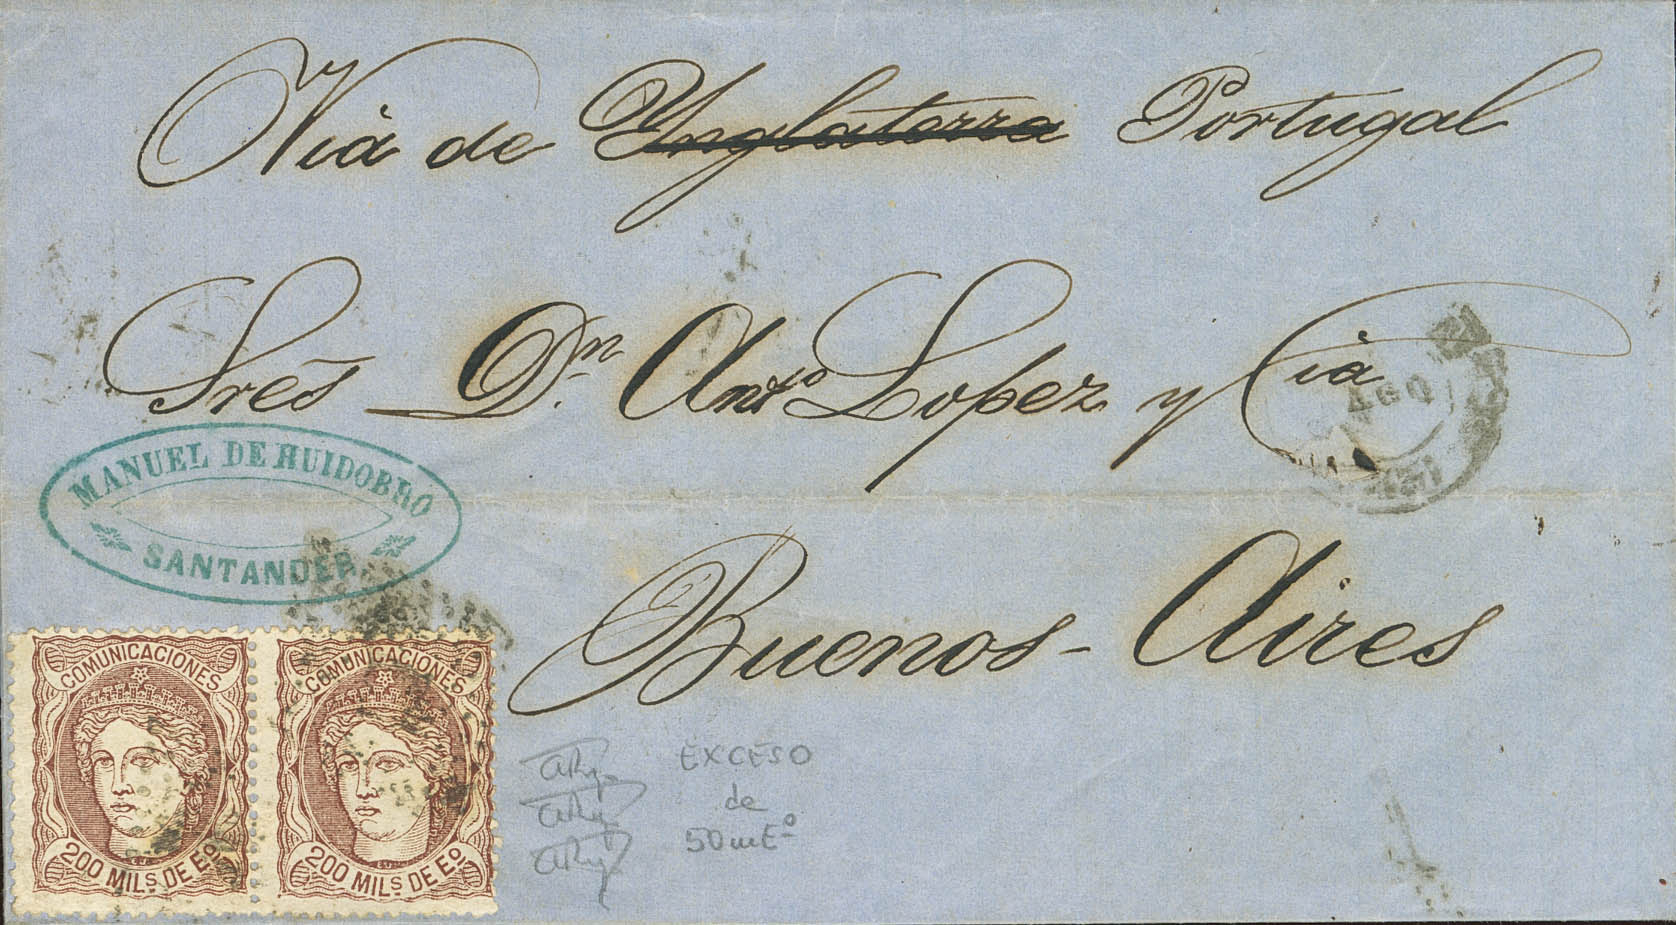 Vià de Inglaterra Portugal
Sres Dn. Anto. Lopez y Cia
AGO
MANUEL DE HUIDOBRO
SANTANDER
Buenos-Aires
COMUNICACIONES COMUNICACIONES
200 MILs DE Eo. 200 MILs DE Eo.
EXCESO
de
50 mEo